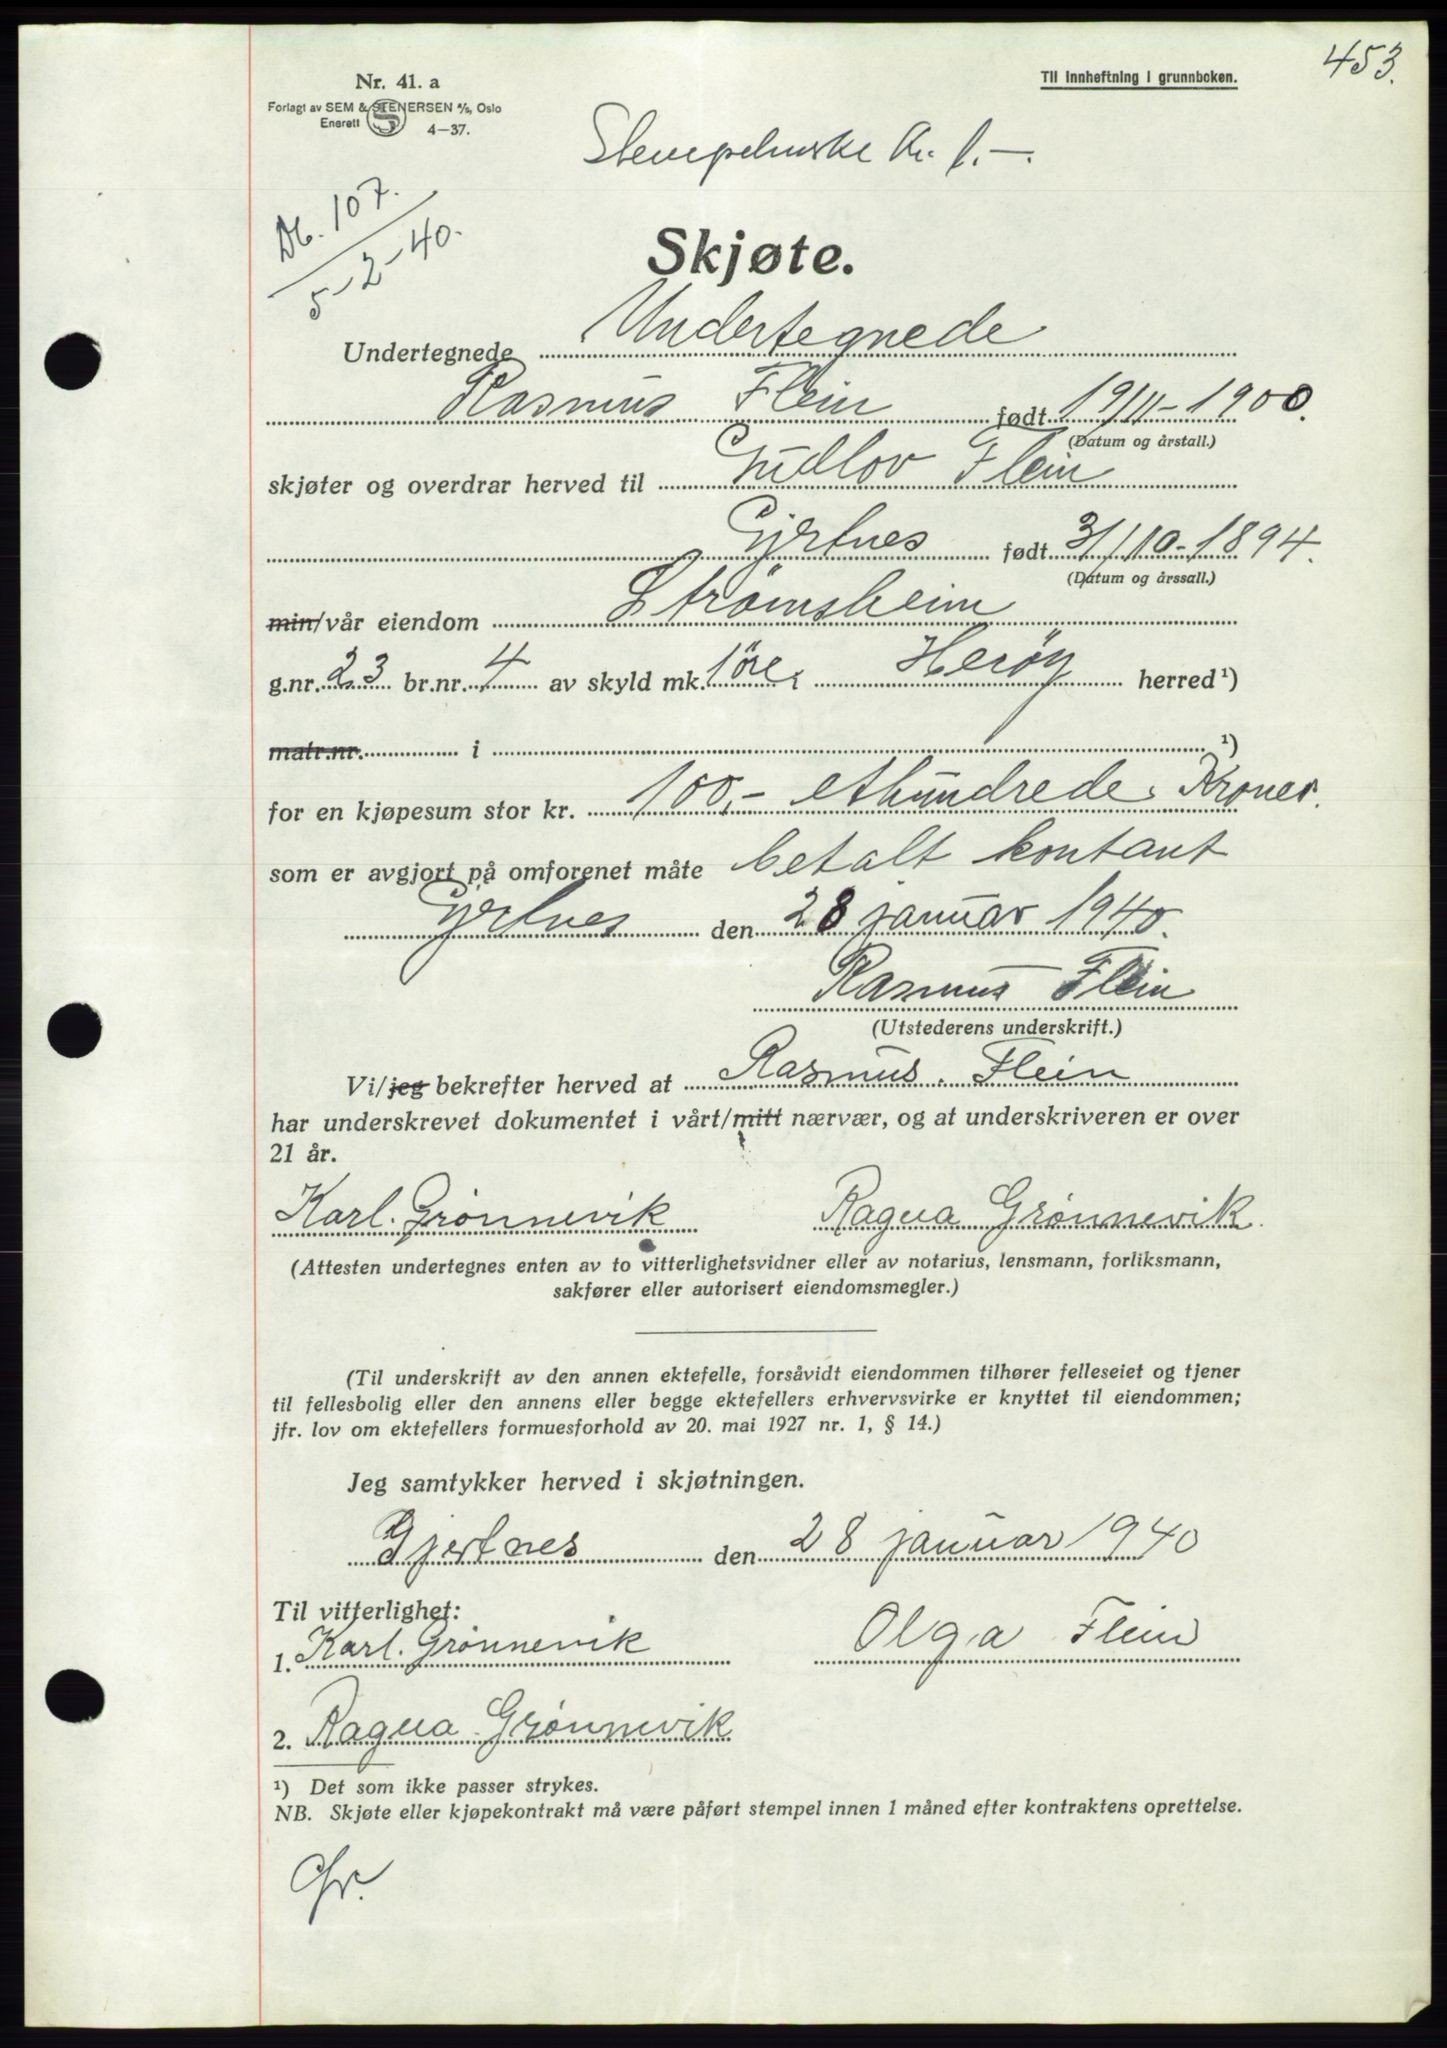 453.
Nr. 41. a
Til innheftning i grunnboken.
Forlagt av SEM & STENERSEN A/S, Oslo
Enerett
4—37.
Kr. 1.—.
Db. 107.
5-2-40.
Skjøte.
Undertegnede Undertegnede
Rasmus Flein født 19/11-1900.
(Datum og årstall.)
skjøter og overdrar herved til Gudlov Flein
Gjertnes født 31/10-1894.
(Datum og årssall.)
min/vår eiendom Strømsheim
g.nr. 23 br.nr. 4 av skyld mk. 1 öre, Herøy herred ¹)
matr.nr. i ¹)
for en kjøpesum stor kr. 100,- ethundrede Kroner.
som er avgjort på omforenet måte betalt kontant
Gjertnes den 28 januar 1940.
Rasmus Flein
(Utstederens underskrift.)
Vi/jeg bekrefter herved at Rasmus. Flein
har underskrevet dokumentet i vårt/mitt nærvær, og at underskriveren er over
21 år.
Karl. Grønnevik Ragna Grønnevik.
(Attesten undertegnes enten av to vitterlighetsvidner eller av notarius, lensmann, forliksmann,
sakfører eller autorisert eiendomsmegler.)
(Til underskrift av den annen ektefelle, forsåvidt eiendommen tilhører felleseiet og tjener
til fellesbolig eller den annens eller begge ektefellers erhvervsvirke er knyttet til eiendommen;
jfr. lov om ektefellers formuesforhold av 20. mai 1927 nr. 1, § 14.)
Jeg samtykker herved i skjøtningen.
Gjertnes den 28 januar 1940
Til vitterlighet:
1. Karl. Grønnevik Olga Flein
2. Ragna Grønnevik
¹) Det som ikke passer strykes.
NB. Skjøte eller kjøpekontrakt må være påført stempel innen 1 måned efter kontraktens oprettelse.